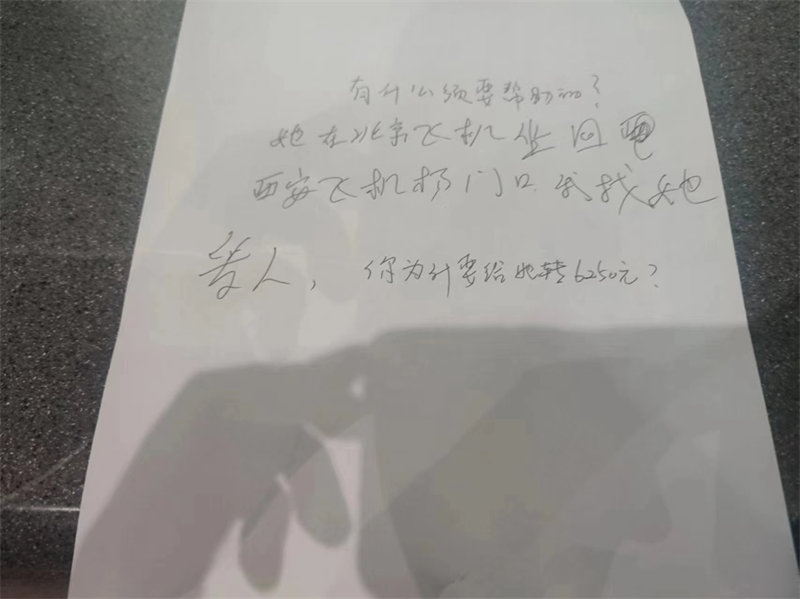 有什么须要帮助的？
她在北京飞机坐回
西安飞机杨门口我找她
人，你为什要给她转6250元？